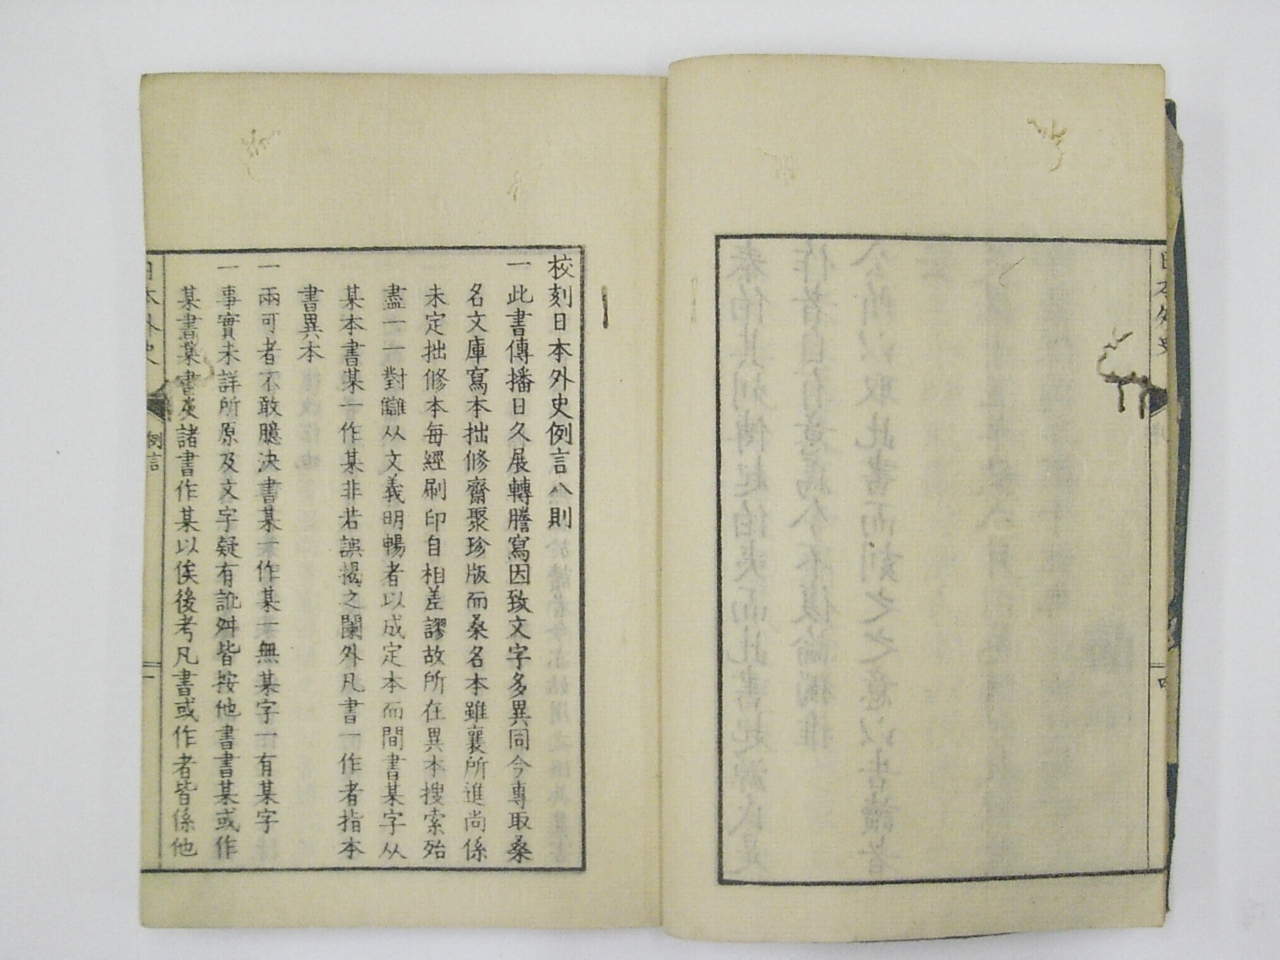 日本外史
四
校刻日本外史例言八則
一此書傳播日久展轉謄寫因致文字多異同今專取桑
名文庫寫本拙修齋聚珍版而桑名本雖襄所進尚係
未定拙修本每經刷印自相差謬故所在異本搜索殆
盡一一對讎从文義明暢者以成定本而間書某字从
某本書某一作某非若誤揭之闌外凡書一作者指本
書異本
一兩可者不敢臆決書某一作某一無某字一有某字
一事實未詳所原及文字疑有訛舛皆按他書書某或作
某書某書史諸書作某以俟後考凡書或作者皆係他
日本外史
例言
一